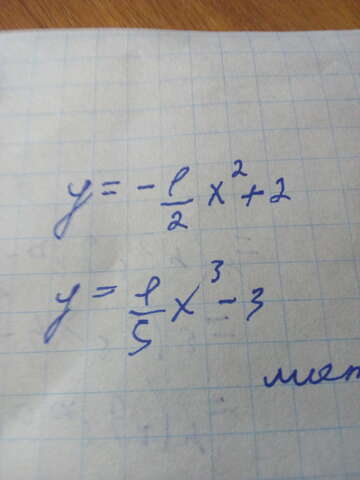 y = -1/2 x² + 2
y = 1/5 x³ - 3